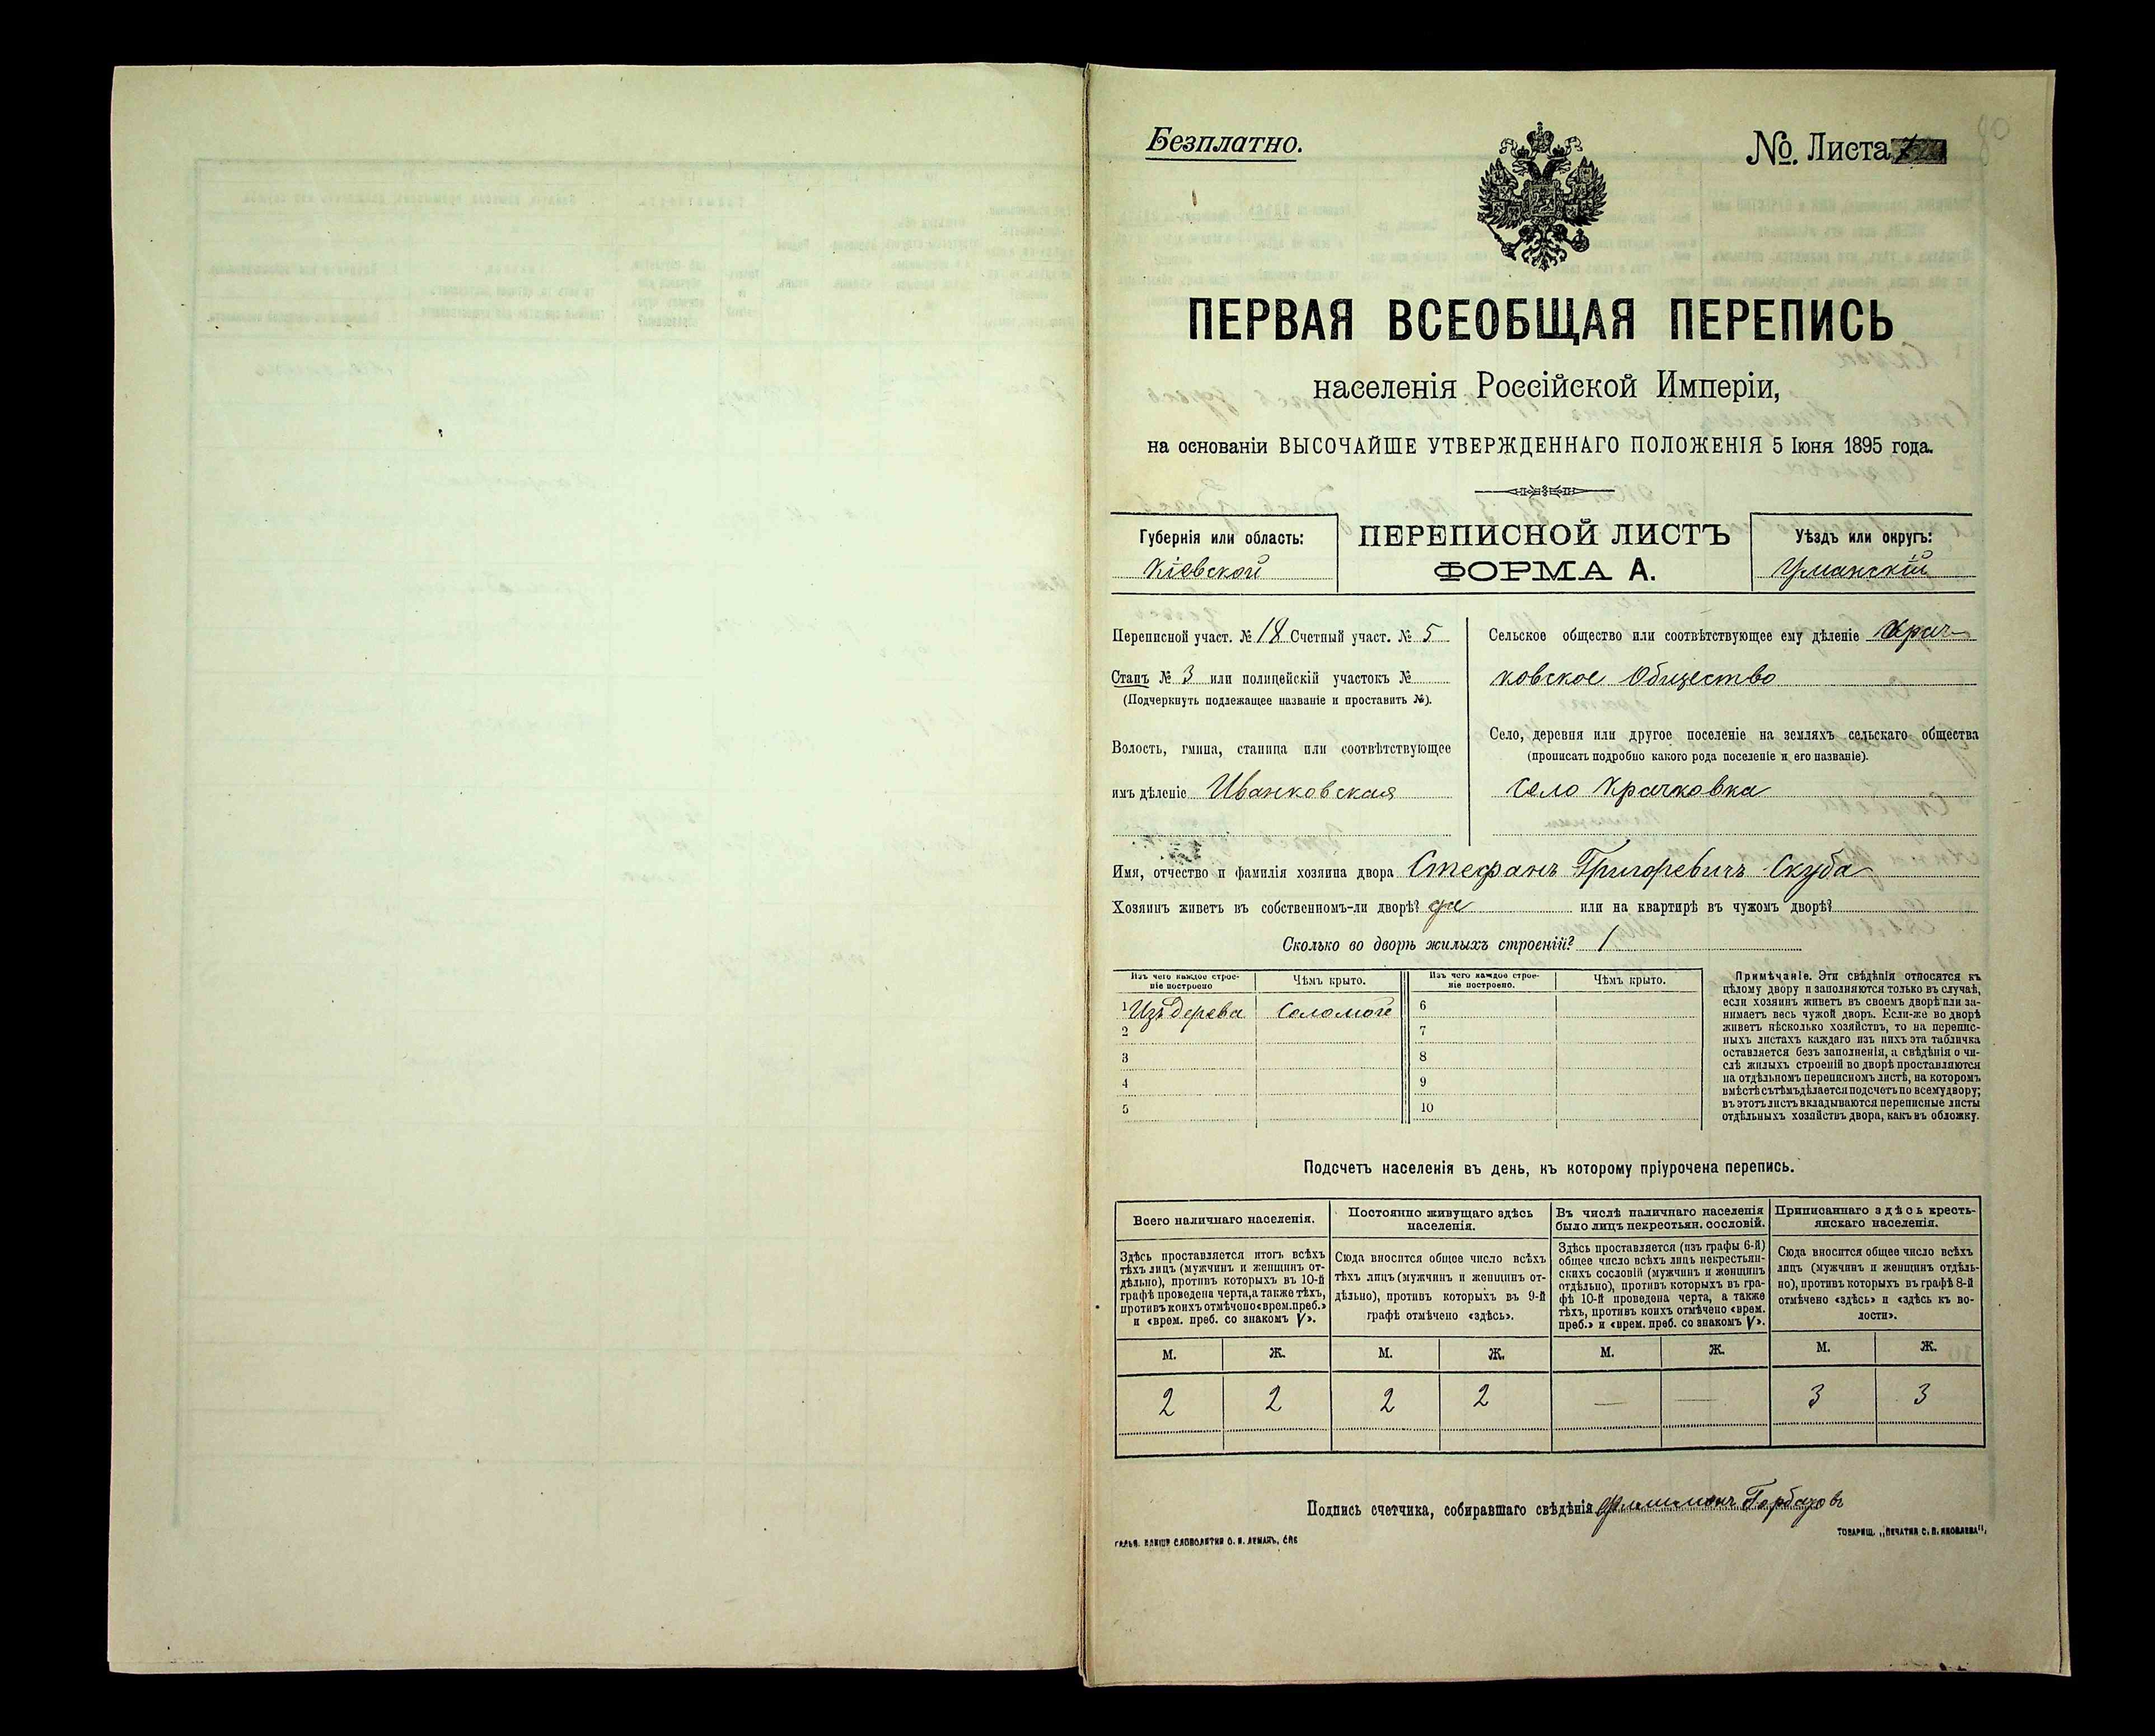 Безплатно.
№. Листа
ПЕРВАЯ ВСЕОБЩАЯ ПЕРЕПИСЬ
населенія Россійской Имперіи,
на основаніи ВЫСОЧАЙШЕ УТВЕРЖДЕННАГО ПОЛОЖЕНІЯ 5 Іюня 1895 года.
Губернія или область:
Кіевской
ПЕРЕПИСНОЙ ЛИСТЪ
ФОРМА А.
Уѣздъ или округъ:
Уманскій
Переписной участ. № 18 Счетный участ. № 5
Станъ № 3 или полицейскій участокъ №
(Подчеркнуть подлежащее названіе и проставить №).
Волость, гмина, станица или соотвѣтствующее
имъ дѣленіе Иванковская
Сельское общество или соотвѣтствующее ему дѣленіе Крач-
ковское Общество
Село, деревня или другое поселеніе на земляхъ сельскаго общества
(прописать подробно какого рода поселеніе и его названіе).
Село Крачковка
Имя, отчество и фамилія хозяина двора Стефанъ Григоревичъ Скуба
Хозяинъ живетъ въ собственномъ-ли дворѣ? да или на квартирѣ въ чужомъ дворѣ?
Сколько во дворѣ жилыхъ строеній? 1
Изъ чего каждое строе-
ніе построено
Чѣмъ крыто.
Изъ чего каждое строе-
ніе построено.
Чѣмъ крыто.
1 Изъ дерева Соломой 6
2 7
3 8
4 9
5 10
Примѣчаніе. Эти свѣдѣнія относятся къ
цѣлому двору и заполняются только въ случаѣ,
если хозяинъ живетъ въ своемъ дворѣ или за-
нимаетъ весь чужой дворъ. Если-же во дворѣ
живетъ нѣсколько хозяйствъ, то на перепис-
ныхъ листахъ каждаго изъ нихъ эта табличка
оставляется безъ заполненія, а свѣдѣнія о чи-
слѣ жилыхъ строеній во дворѣ проставляются
на отдѣльномъ переписномъ листѣ, на которомъ
вмѣстѣ съ тѣмъ дѣлается подсчетъ по всему двору;
въ этотъ листъ вкладываются переписные листы
отдѣльныхъ хозяйствъ двора, какъ въ обложку.
Подсчетъ населенія въ день, къ которому пріурочена перепись.
Всего наличнаго населенія.
Постоянно живущаго здѣсь
населенія.
Въ числѣ наличнаго населенія
было лицъ некрестьян. сословій.
Приписаннаго здѣсь кресть-
янскаго населенія.
Здѣсь проставляется итогъ всѣхъ
тѣхъ лицъ (мужчинъ и женщинъ от-
дѣльно), противъ которыхъ въ 10-й
графѣ проведена черта, а также тѣхъ,
противъ коихъ отмѣчено «врем. преб.»
и «врем. преб. со знакомъ V».
Сюда вносится общее число всѣхъ
тѣхъ лицъ (мужчинъ и женщинъ от-
дѣльно), противъ которыхъ въ 9-й
графѣ отмѣчено «здѣсь».
Здѣсь проставляется (изъ графы 6-й)
общее число всѣхъ лицъ некрестьян-
скихъ сословій (мужчинъ и женщинъ
отдѣльно), противъ которыхъ въ гра-
фѣ 10-й проведена черта, а также
тѣхъ, противъ коихъ отмѣчено «врем.
преб.» и «врем. преб. со знакомъ V».
Сюда вносится общее число всѣхъ
лицъ (мужчинъ и женщинъ отдѣль-
но), противъ которыхъ въ графѣ 8-й
отмѣчено «здѣсь» и «здѣсь къ во-
лости».
М. Ж. М. Ж. М. Ж. М. Ж.
2 2 2 2 — — 3 3
Подпись счетчика, собиравшаго свѣдѣнія Филимонъ Горбачовъ
ГАЛЬВ. КЛИШЕ СЛОВОЛИТНИ О. И. ЛЕМАНЪ, СПБ
ТОВАРИЩ. „ПЕЧАТНЯ С. П. ЯКОВЛЕВА",